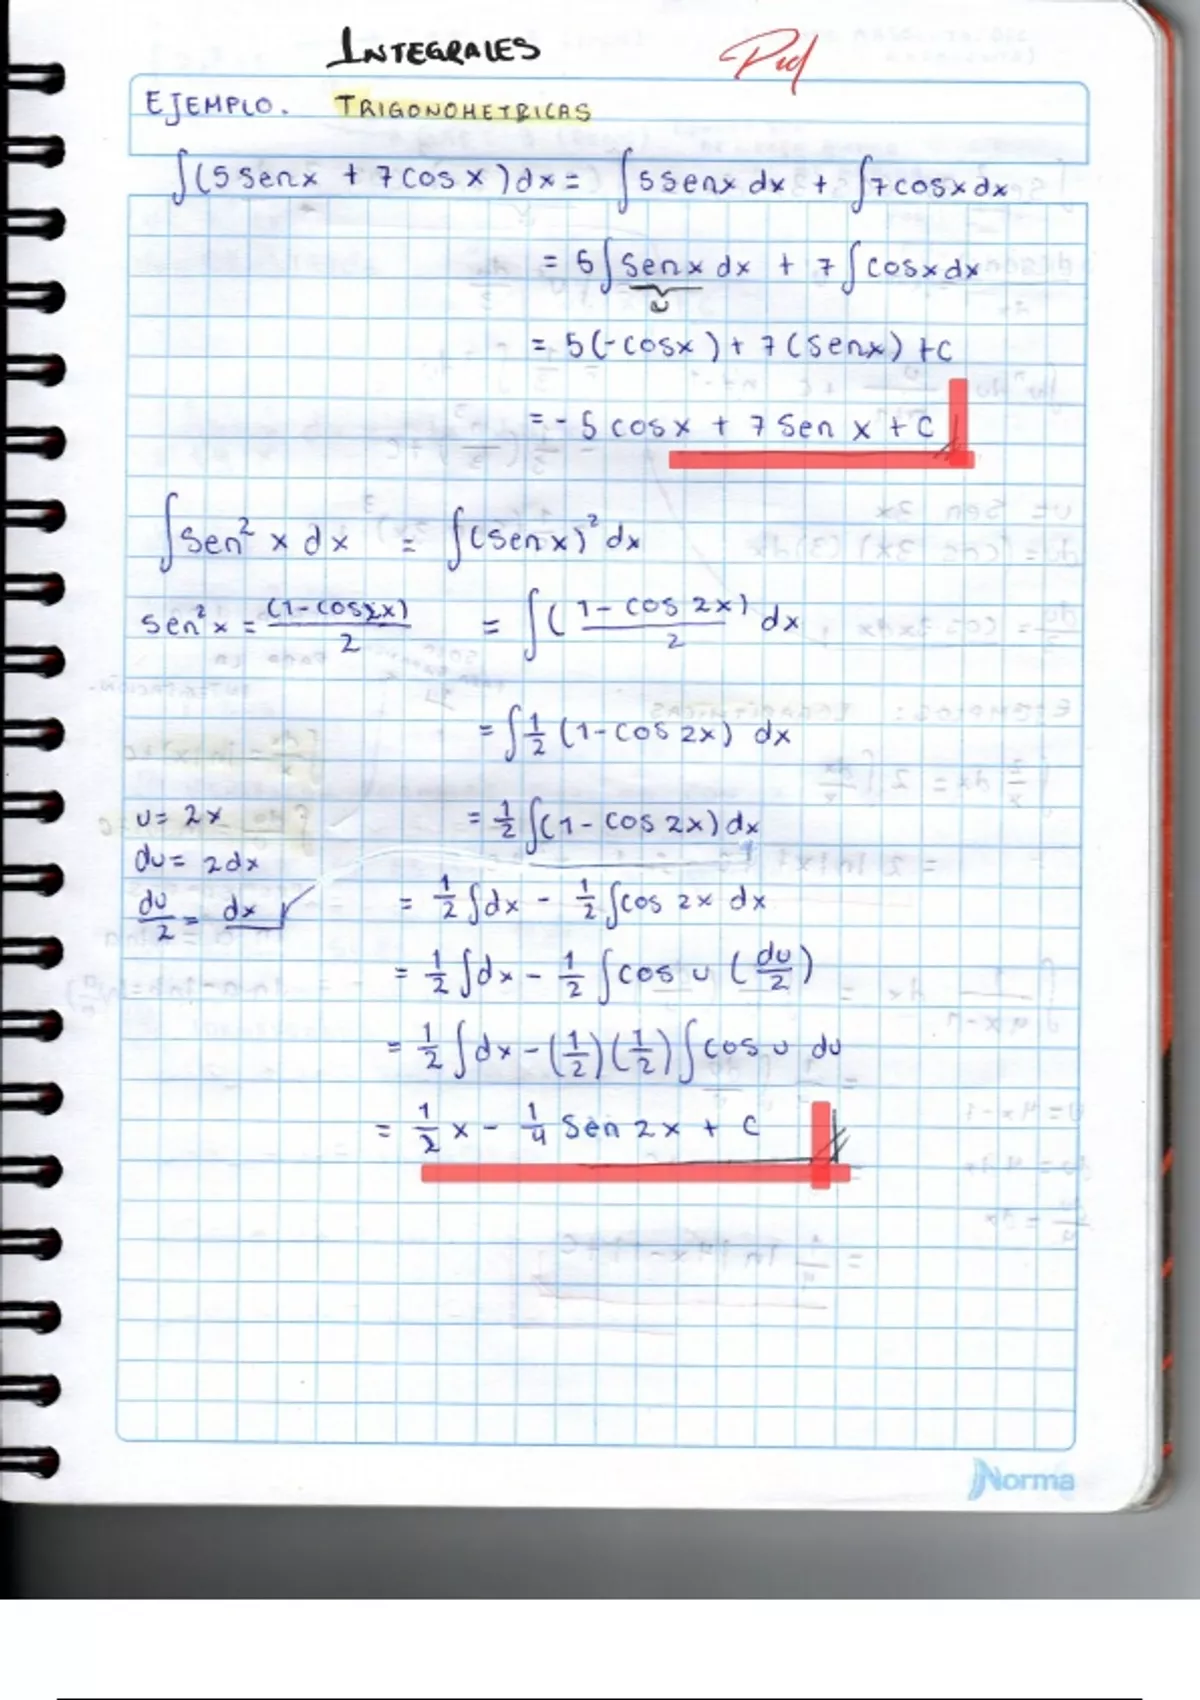 INTEGRALES
EJEMPLO. TRIGONOMETRICAS
∫(5 senx + 7 cos x) dx = ∫5 senx dx + ∫7 cosx dx
= 5∫senx dx + 7∫cosx dx
u
= 5(-cosx) + 7(senx) + C
= -5 cosx + 7 Sen x + C
∫Sen² x dx = ∫(senx)² dx
Sen²x = (1-cos2x)/2 = ∫(1-cos 2x)/2 dx
= ∫1/2 (1-cos 2x) dx
u = 2x = 1/2 ∫(1-cos 2x) dx
du = 2dx
du/2 = dx = 1/2 ∫dx - 1/2 ∫cos 2x dx
= 1/2 ∫dx - 1/2 ∫cos u (du/2)
= 1/2 ∫dx - (1/2)(1/2) ∫cos u du
= 1/2 x - 1/4 Sen 2x + C
Norma